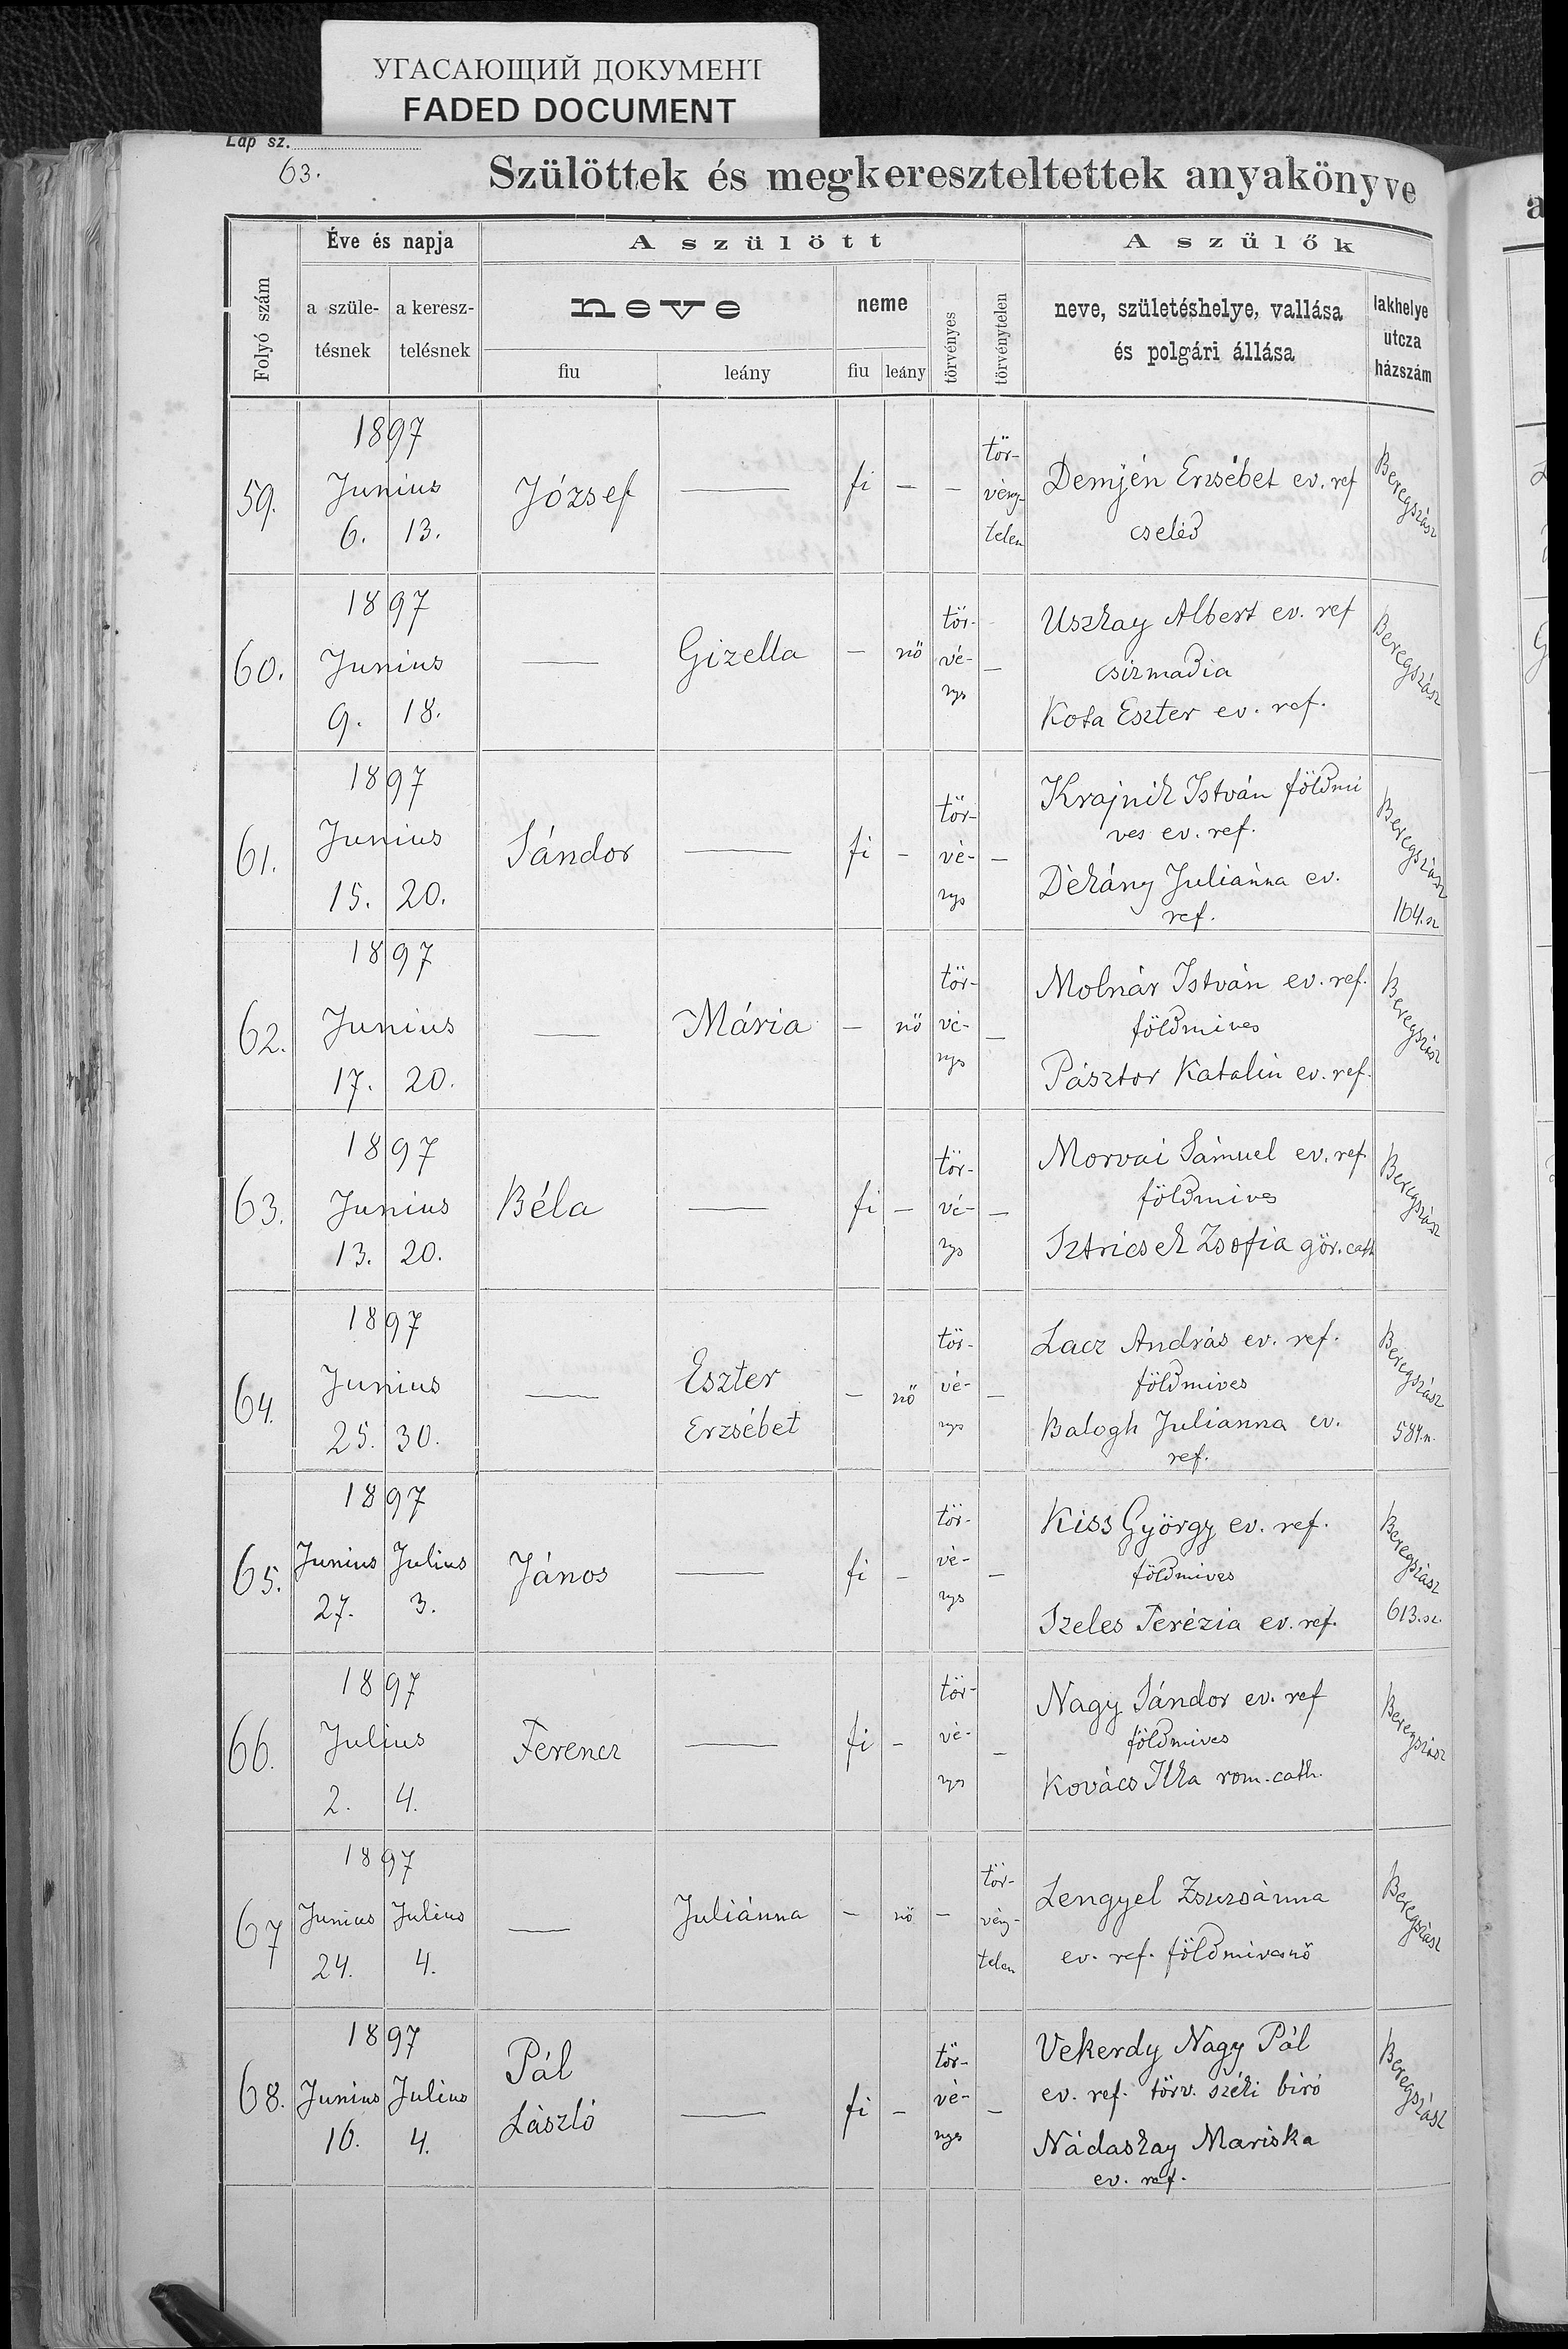 УГАСАЮЩИЙ ДОКУМЕНТ
FADED DOCUMENT
Lap sz.
63.
Szülöttek és megkereszteltettek anyakönyve
Folyó szám
Éve és napja
a szüle-
tésnek
a keresz-
telésnek
A szülött
neve
fiu
leány
neme
fiu leány
törvényes
törvénytelen
A szülők
neve, születéshelye, vallása
és polgári állása
lakhelye
utcza
házszám
59.
1897
Junius
6. 13.
József
fi - -
tör-
vény-
telen
Demjén Erzsébet ev. ref
cseléd
Beregszász
60.
1897
Junius
9. 18.
Gizella
- nő
tör-
vé-
nys
-
Uszkay Albert ev. ref
csizmadia
Kota Eszter ev. ref.
Beregszász
61.
1897
Junius
15. 20.
Sándor
fi -
tör-
vé-
nys
-
Krajnik István földmi
ves ev. ref.
Dékány Juliánna ev.
ref.
Beregszász
164. sz
62.
1897
Junius
17. 20.
Mária
- nő
tör-
vé-
nys
-
Molnár István ev. ref.
földmives
Pásztor Katalin ev. ref.
Beregszász
63.
1897
Junius
13. 20.
Béla
fi -
tör-
vé-
nys
-
Morvai Sámuel ev. ref.
földmives
Sztricsek Zsofia gör. cath
Beregszász
64.
1897
Junius
25. 30.
Eszter
Erzsébet
- nő
tör-
vé-
nys
-
Lacz András ev. ref.
földmives
Balogh Julianna ev.
ref.
Beregszász
584.
65.
1897
Junius Julius
27. 3.
János
fi -
tör-
vé-
nys
-
Kiss György ev. ref.
földmives
Szeles Terézia ev. ref.
Beregszász
613. sz.
66.
1897
Julius
2. 4.
Ferencz
fi -
tör-
vé-
nys
-
Nagy Sándor ev. ref
földmives
Kovács Ilka rom. cath.
Beregszász
67
1897
Junius Julius
24. 4.
Juliánna
- nő -
tör-
vény-
telen
Lengyel Zsuzsánna
ev. ref. földmivesnő
Beregszász
68.
1897
Junius Julius
16. 4.
Pál
László
fi -
tör-
vé-
nys
-
Vekerdy Nagy Pál
ev. ref. törv. széki biró
Nádaskay Mariska
ev. ref.
Beregszász